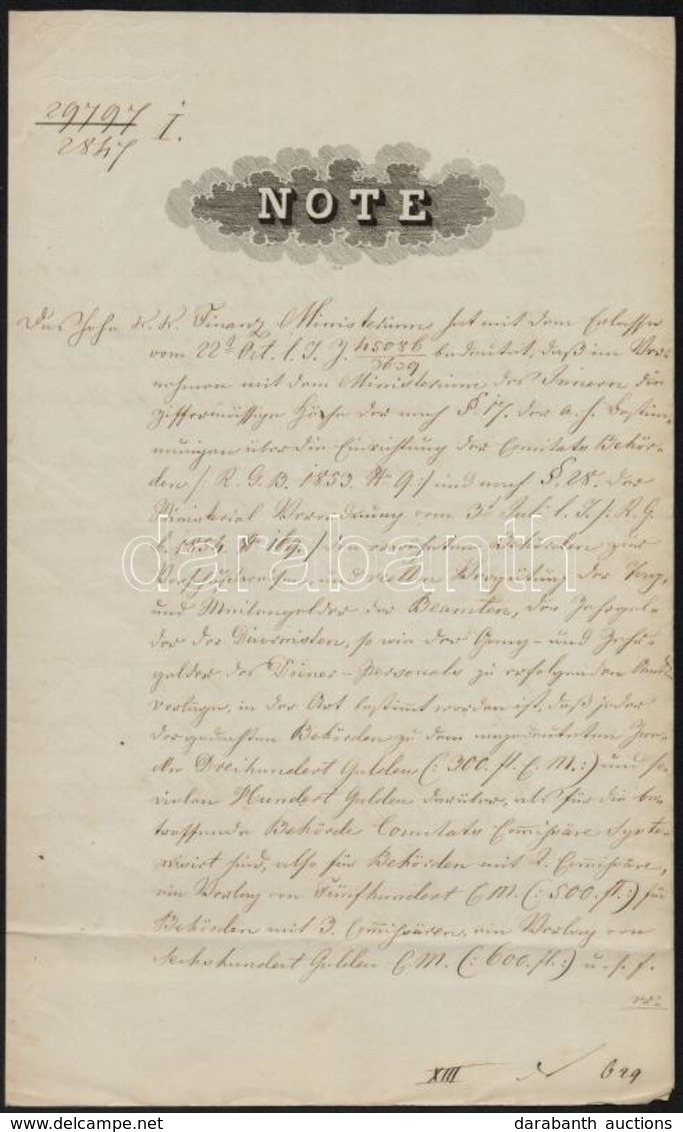 29797
2847
I.
NOTE
Das hohe K. K. Finanz Ministerium hat mit dem Erlasse
vom 22t Oct. l. J. Z. 45086
bedeutet, daß im Ver-
nehmen mit dem Ministerium des Innern die
ziffermässige Höhe der nach §. 17. der a. h. Bestim-
mungen über die Einrichtung der Comitats Behör-
den /: R. G. B. 1853. No 9 :/ und nach §. 28. der
Ministerial Verordnung vom 3t Juli l. J. /: R. G.
b. 1854. No 169. :/ den erwähnten Behörden zur
und vollen Vergütung der Tag-
und Meilengelder der Beamten, der
der der Diurnisten, so wie der Gang- und Zehr-
gelder des Diener-Personals zu erfolgenden
verläge, in der Art bestimmt worden ist, daß jeder
der gedachten Behörden zu dem angedeuteten Zwe-
cke Dreihundert Gulden (: 300. fl. C. M. :) und so-
vielen Hundert Gulden darüber, als für die be-
treffende Behörde Comitats Commissäre syste-
misirt sind, also für Behörden mit 2. Commissäre,
ein Verlag von Fünfhundert C. M. (: 500. fl. :) für
Behörden mit 3. Commissären, ein Verlag von
Sechshundert Gulden C. M. (: 600. fl. :) u. s. f.
XIII
629
darabanth
delcampe.net
darabanth auctions